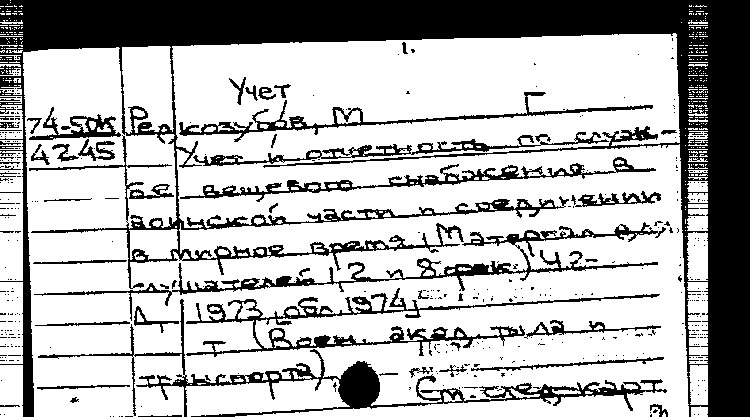 1.
Учет
74-50К Редкозубов, М Г
4245 Учет и отчетность по служ-
бе вещевого снабжения в
воинской части и соединении
в мирное время (Материал для
слушателей 1, 2 и 8 фак.) Ч 2-
Л, 1973, обл. 1974,
т (Воен. акад. тыла и
транспорта)
См. след. карт.